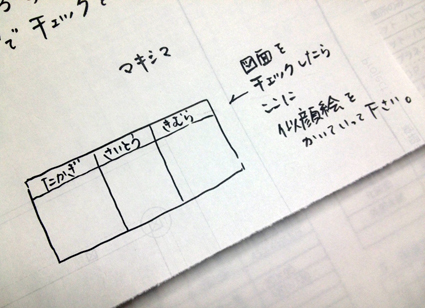 でチェックで
マキシマ
図面を
チェックしたら
ここに
似顔絵を
かいていって下さい。
たかぎ
さいとう
きむら